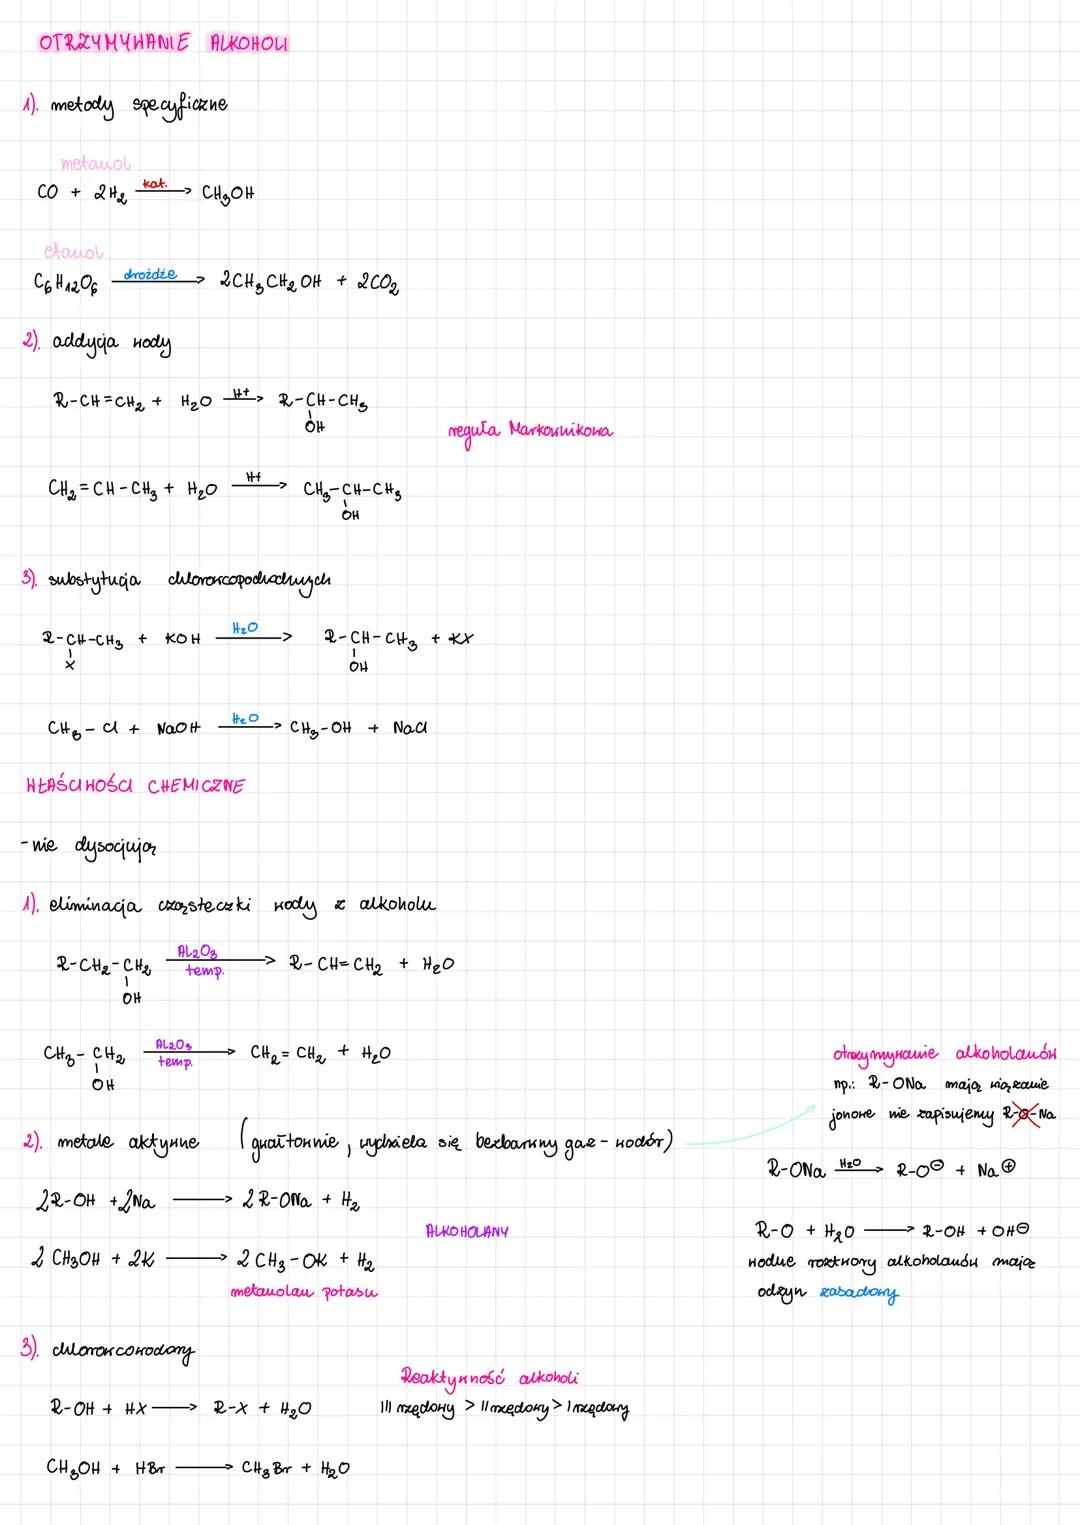 OTRZYMYWANIE ALKOHOLI
1). metody specyficzne
metanol
CO + 2H₂ —kat.→ CH₃OH
etanol
C₆H₁₂O₆ —drożdże→ 2CH₃CH₂OH + 2CO₂
2). addycja wody
R-CH=CH₂ + H₂O —H+→ R-CH-CH₃
OH
reguła Markownikowa
CH₂=CH-CH₃ + H₂O —H+→ CH₃-CH-CH₃
OH
3). substytucja chlorowcopochodnych
R-CH-CH₃ + KOH —H₂O→ R-CH-CH₃ + KX
X OH
CH₃-Cl + NaOH —H₂O→ CH₃-OH + NaCl
WŁAŚCIWOŚCI CHEMICZNE
- nie dysocjują
1). eliminacja cząsteczki wody z alkoholu
R-CH₂-CH₂ —Al₂O₃ temp.→ R-CH=CH₂ + H₂O
OH
CH₃-CH₂ —Al₂O₃ temp.→ CH₂=CH₂ + H₂O
OH
2). metale aktywne (gwałtownie, wydziela się bezbarwny gaz - wodór)
2R-OH + 2Na → 2R-ONa + H₂
ALKOHOLANY
2CH₃OH + 2K → 2CH₃-OK + H₂
metanolan potasu
otrzymywanie alkoholanów
np.: R-ONa mają wiązanie
jonowe nie zapisujemy R-O-Na
R-ONa —H₂O→ R-O⊖ + Na⊕
R-O + H₂O → R-OH + OH⊖
wodne roztwory alkoholanów mają
odczyn zasadowy
3). chlorowcowodory
R-OH + HX → R-X + H₂O
CH₃OH + HBr → CH₃Br + H₂O
Reaktywność alkoholi
III rzędowy > II rzędowy > I rzędowy